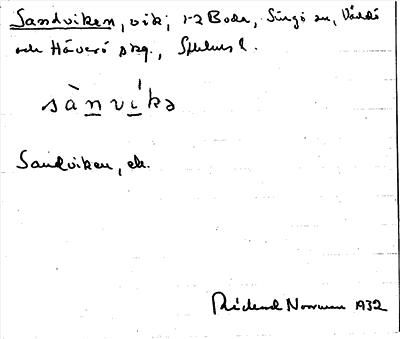 Sandviken, vik; 1-2 Boda, Singö sn, Väddö
och Häverö skg., Sthlms l.
sànvíkə
Sandviken, ek.
Rickard Norrman 1932